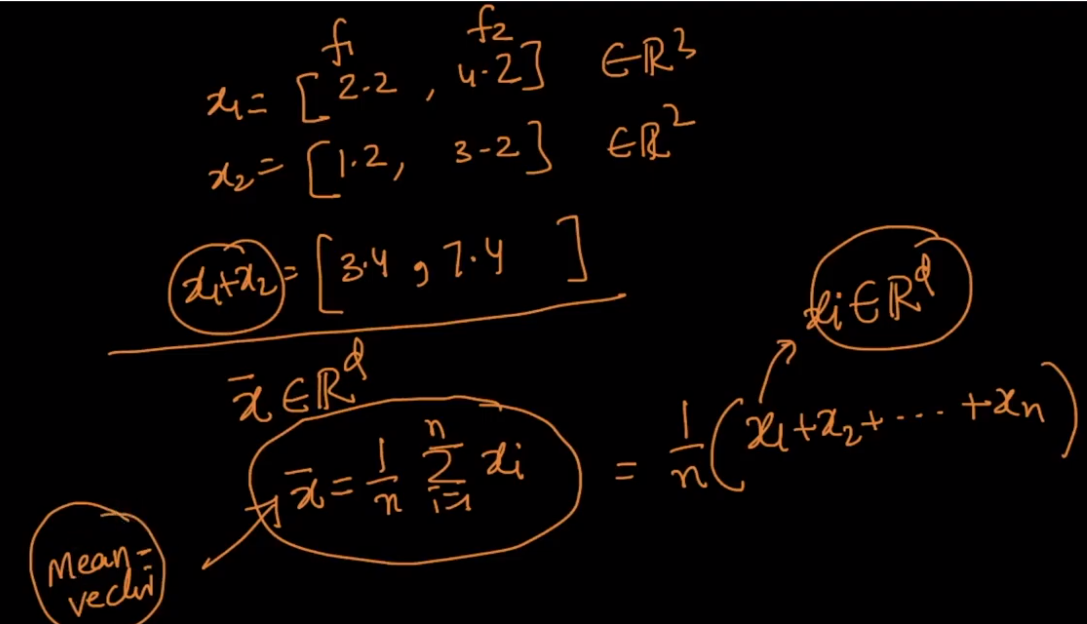 f₁ f₂
x₁ = [2.2, 4.2] ∈ ℝ³
x₂ = [1.2, 3.2] ∈ ℝ²
x₁+x₂ = [3.4, 7.4]
xᵢ ∈ ℝᵈ
x̄ ∈ ℝᵈ
x̄ = 1/n ∑ᵢ₌₁ⁿ xᵢ = 1/n (x₁+x₂+....+xₙ)
Mean-
vector